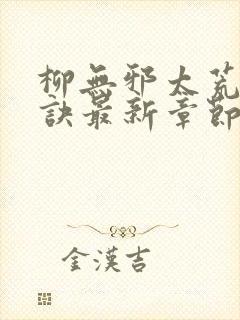 柳無邪太荒
訣最新章節
金漢吉